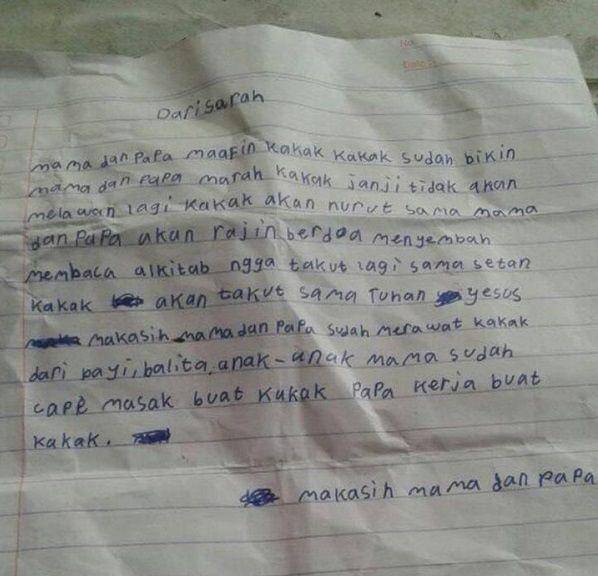 No.
Date
Dari sarah
mama dan papa maafin kakak kakak sudah bikin
mama dan papa marah kakak janji tidak akan
melawan lagi kakak akan nurut sama mama
dan papa akan rajin berdoa menyembah
membaca alkitab ngga takut lagi sama setan
kakak akan takut sama Tuhan yesus
makasih mama dan papa sudah merawat kakak
dari bayi, balita, anak-anak mama sudah
capè masak buat kakak papa kerja buat
kakak.
makasih mama dan papa